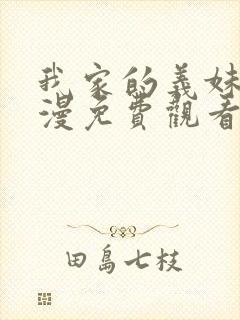 我家的義妹
漫免費觀看
田島七枝